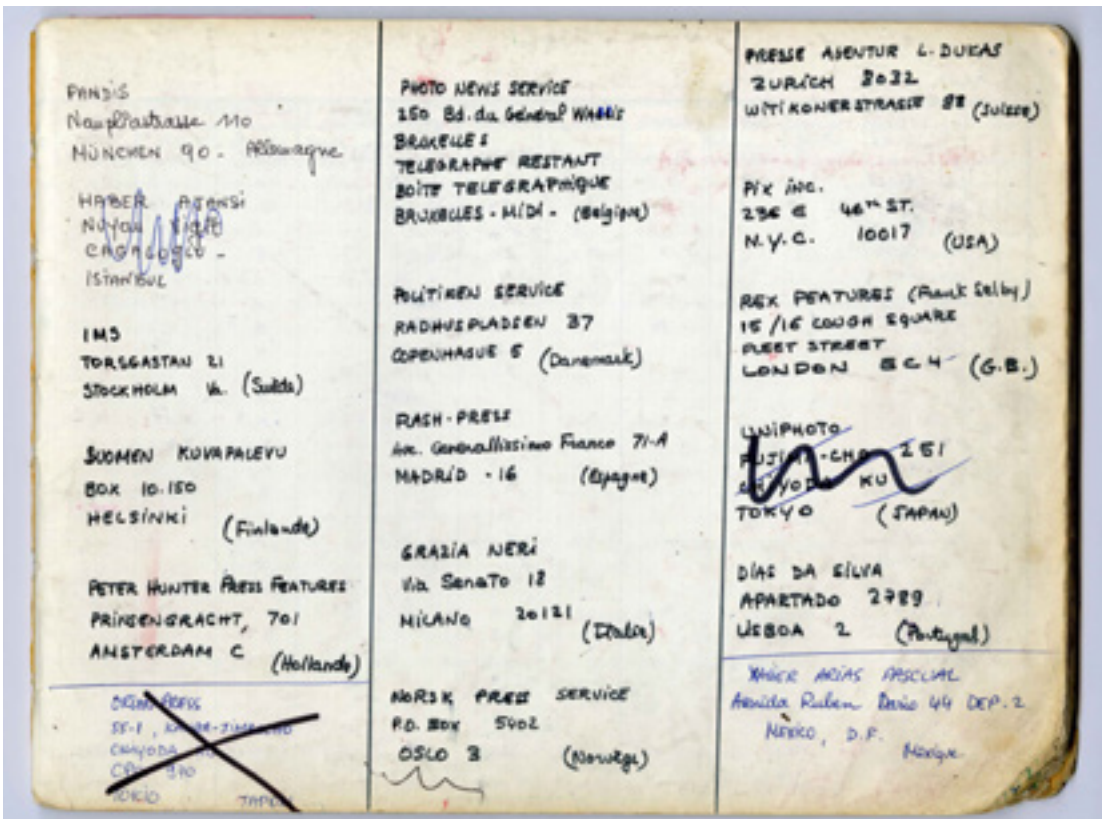 PANDIS
Naupliastrasse 110
MÜNCHEN 90 - Allemagne
HABER AJANSI
CAGALOGLU -
ISTANBUL
IMS
TORSGASTAN 21
STOCKHOLM Va. (Suède)
SUOMEN KUVAPALEVU
BOX 10.150
HELSINKI (Finlande)
PETER HUNTER PRESS FEATURES
PRINSENGRACHT, 701
AMSTERDAM C (Hollande)
ORION PRESS
55-1, KANDA-JIMBOCHO
CHIYODA
CPO 970
TOKIO JAPON
PHOTO NEWS SERVICE
250 Bd. du Général Wahis
BRUXELLES
TELEGRAPHE RESTANT
BOÎTE TELEGRAPHIQUE
BRUXELLES - MIDI - (Belgique)
POLITIKEN SERVICE
RADHUSPLADSEN 37
COPENHAGUE 5 (Danemark)
FLASH-PRESS
Av. Generallissimo Franco 71-A
MADRID - 16 (Espagne)
GRAZIA NERI
Via Senato 18
MILANO 20121 (Italie)
NORSK PRESS SERVICE
P.O. BOX 5402
OSLO 3 (Norwège)
PRESSE AGENTUR L. DUKAS
ZURICH 8032
WITIKONERSTRASSE 92 (Suisse)
Pix inc.
236 E 46TH ST.
N.Y.C. 10017 (USA)
REX FEATURES (Frank Selby)
15/16 COUGH SQUARE
FLEET STREET
LONDON EC4 (G.B.)
UNIPHOTO
FUJIMI-CHO 251
CHIYODA KU
TOKYO (JAPAN)
DIAS DA SILVA
APARTADO 2789
LISBOA 2 (Portugal)
XAVIER ARIAS PASCUAL
Avenida Ruben Dario 44 DEP. 2
MEXICO, D.F.
Mexique